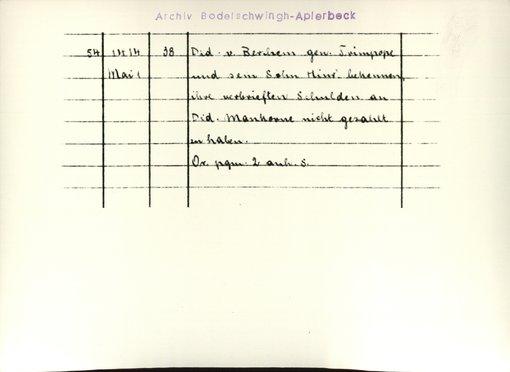 Archiv Bodelschwingh-Aplerbeck
54 1414 38 Did. v. Berchem gen. Trimpope
Mai 1 und sein Sohn Hinr. bekennen,
ihre verbrieften Schulden an
Did. Mankorne nicht gezahlt
zu haben.
Or. pgm. 2 anh. S.